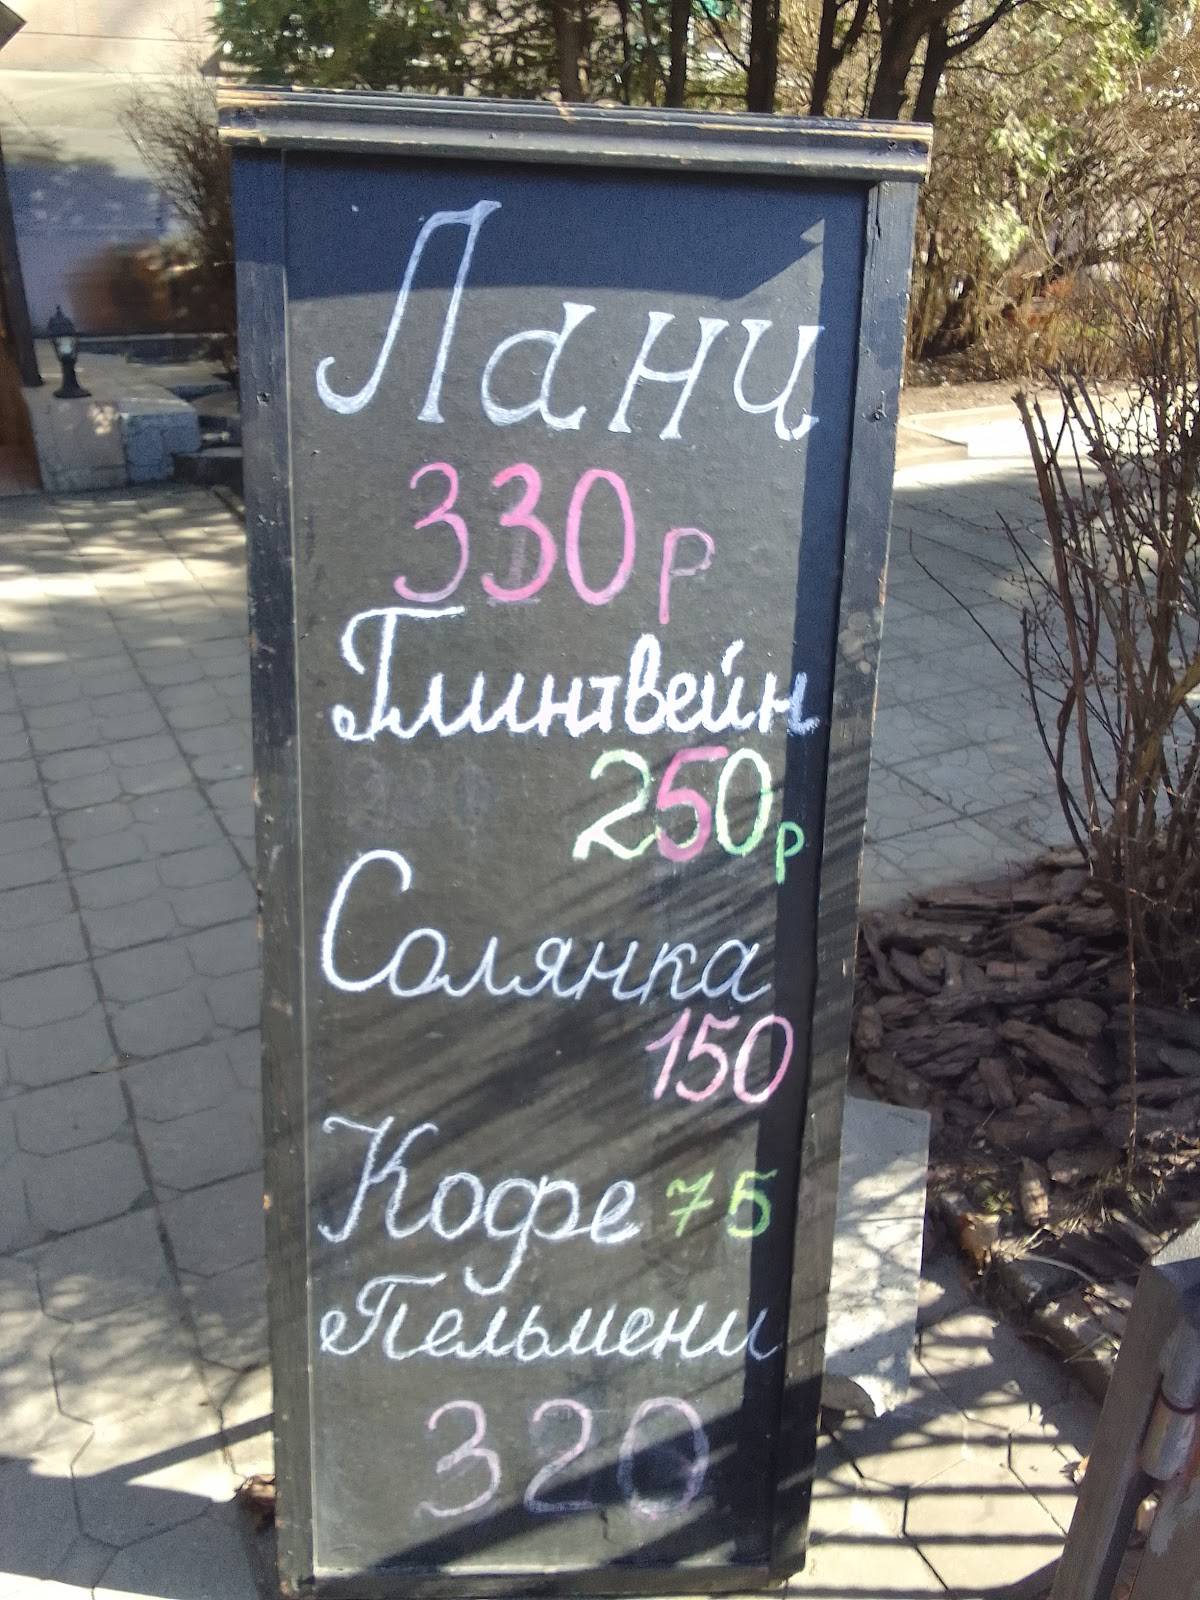 Ланч
330 р
Глинтвейн
250 р
Солянка
150
Кофе 75
Пельмени
320